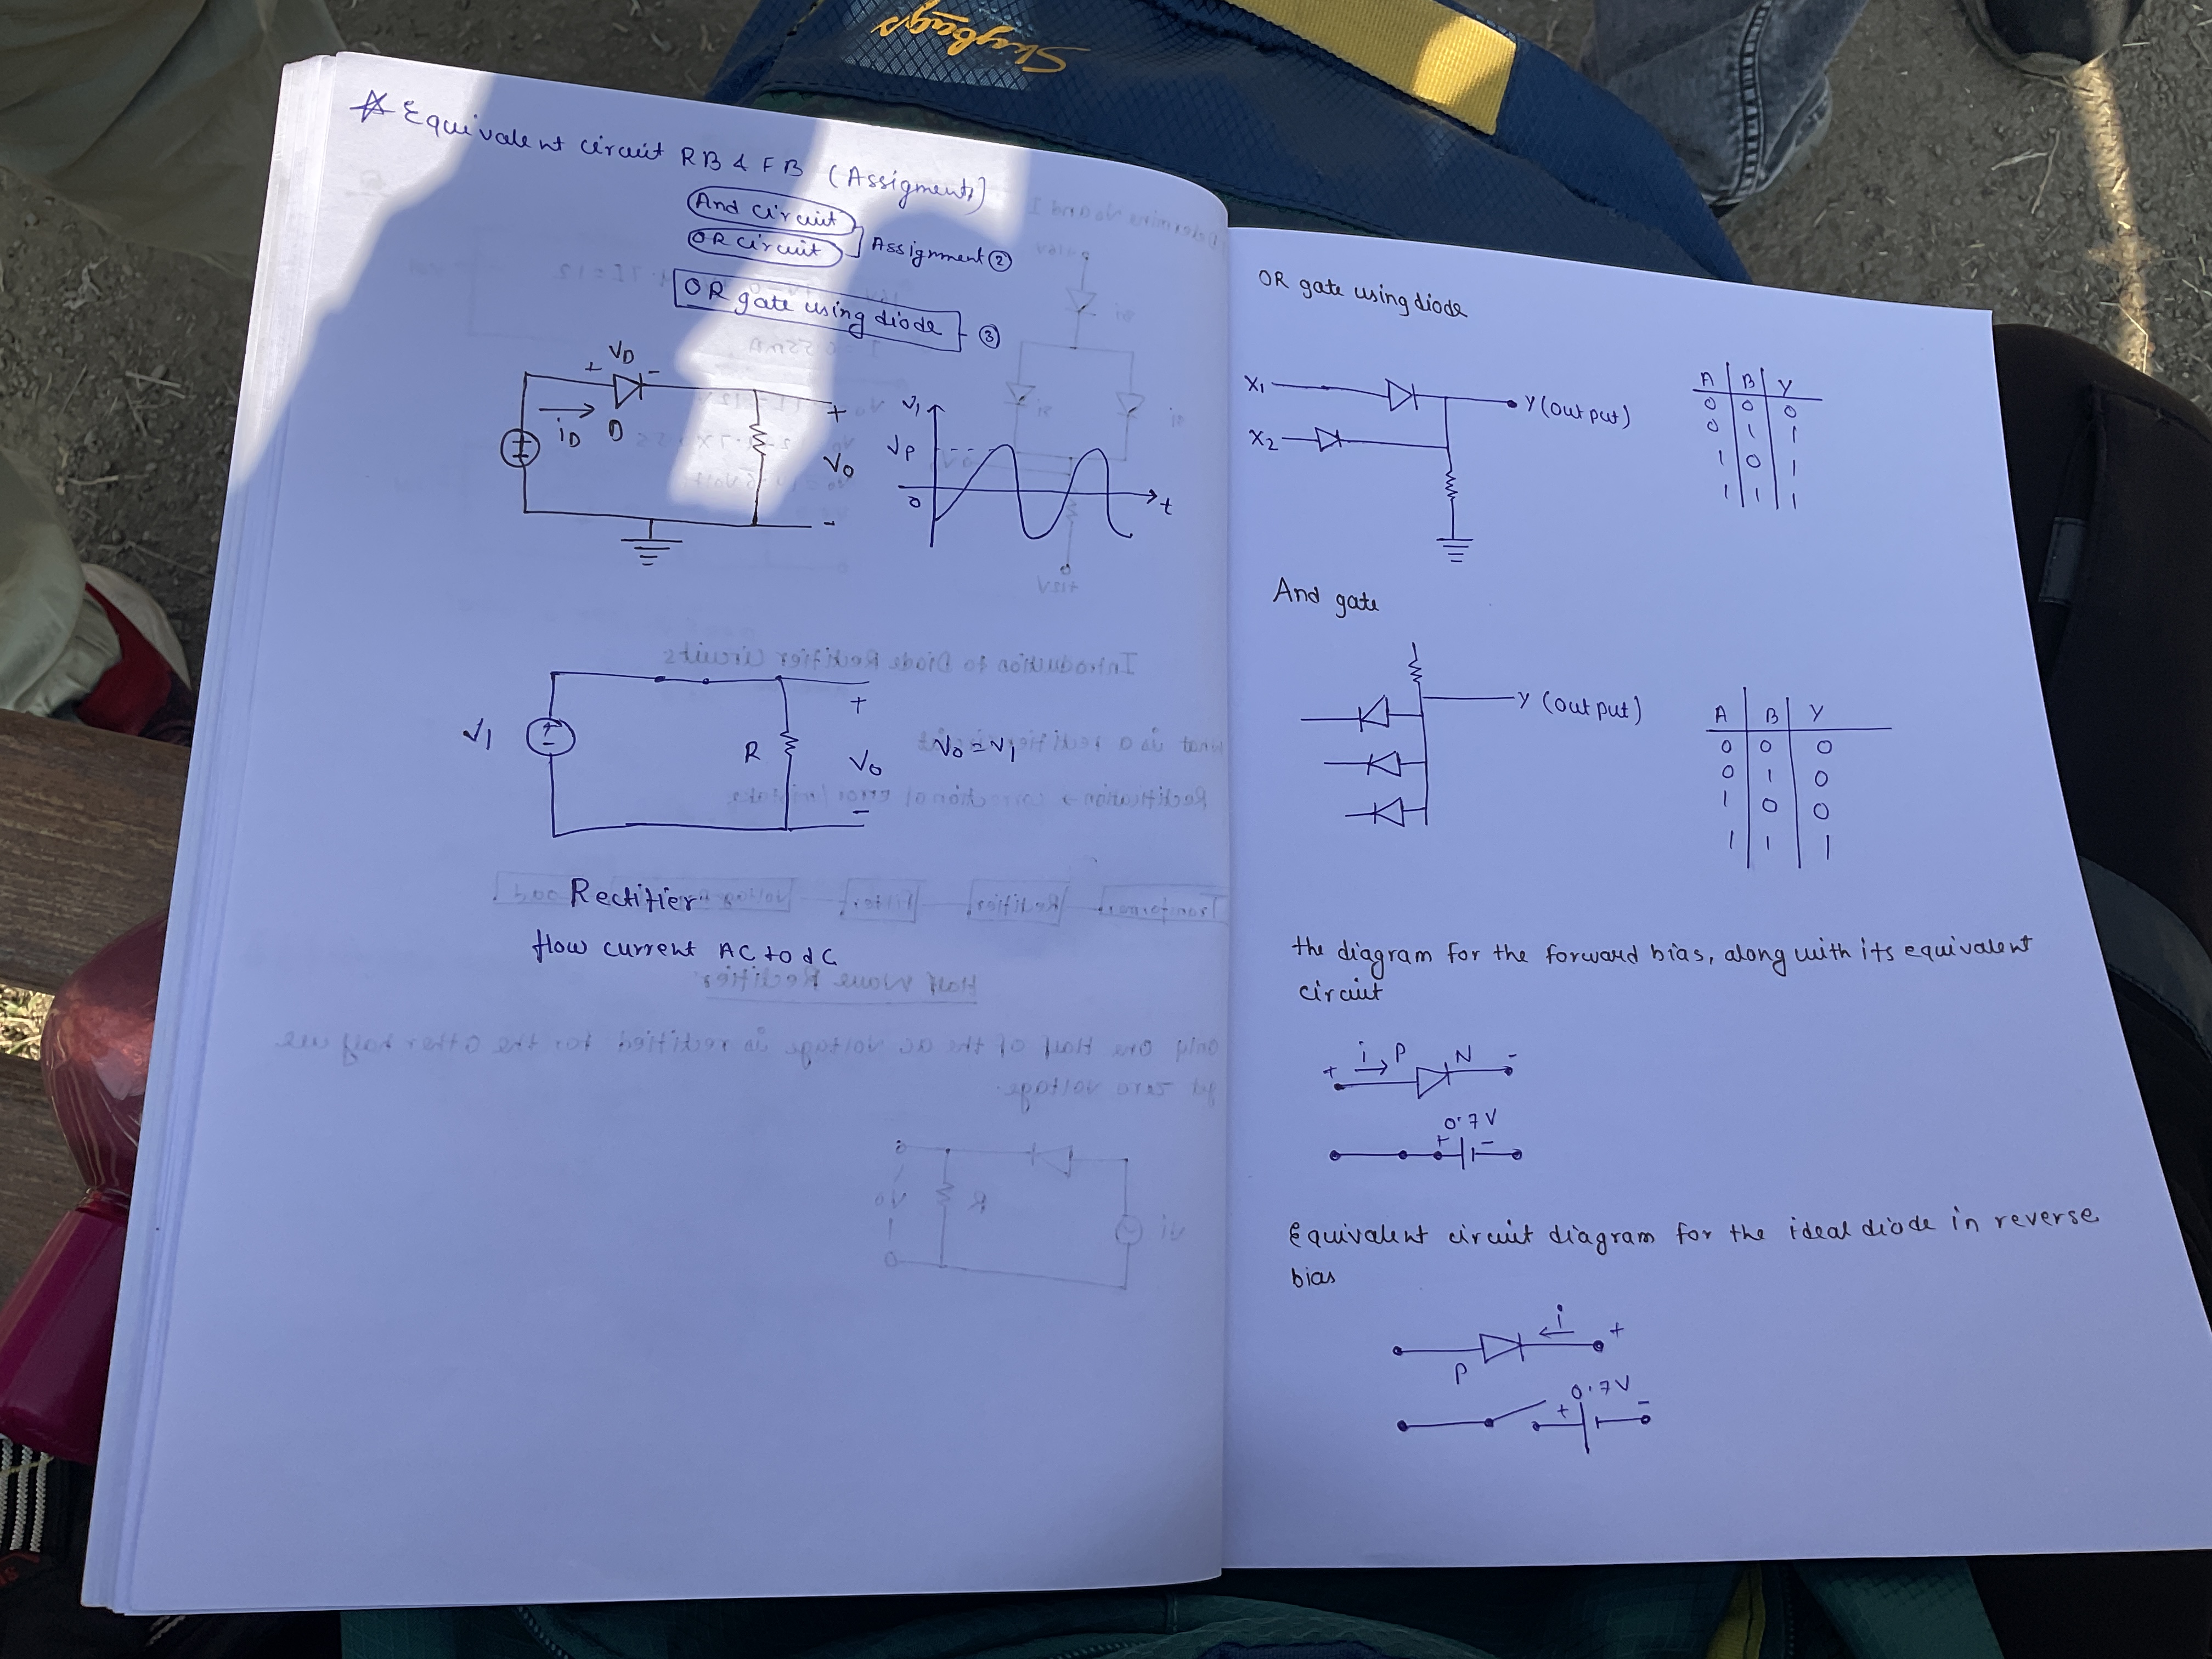 Skybags
☆ Equivalent circuit RB & FB (Assigment)
And circuit
OR circuit
Assignment ②
OR gate using diode ③
VD
+ -
iD D
+
Vo
-
V1
Vp
0
t
V1
+
-
R
+
Vo
-
Vo = V1
Rectifier
flow current AC to dC
OR gate using diode
X1
X2
Y (output)
A B Y
0 0 0
0 1 1
1 0 1
1 1 1
And gate
Y (output)
A B Y
0 0 0
0 1 0
1 0 0
1 1 1
the diagram for the forward bias, along with its equivalent
circuit
+ i P N -
0.7V
+ -
Equivalent circuit diagram for the ideal diode in reverse
bias
i
+
P
0.7V
+ -